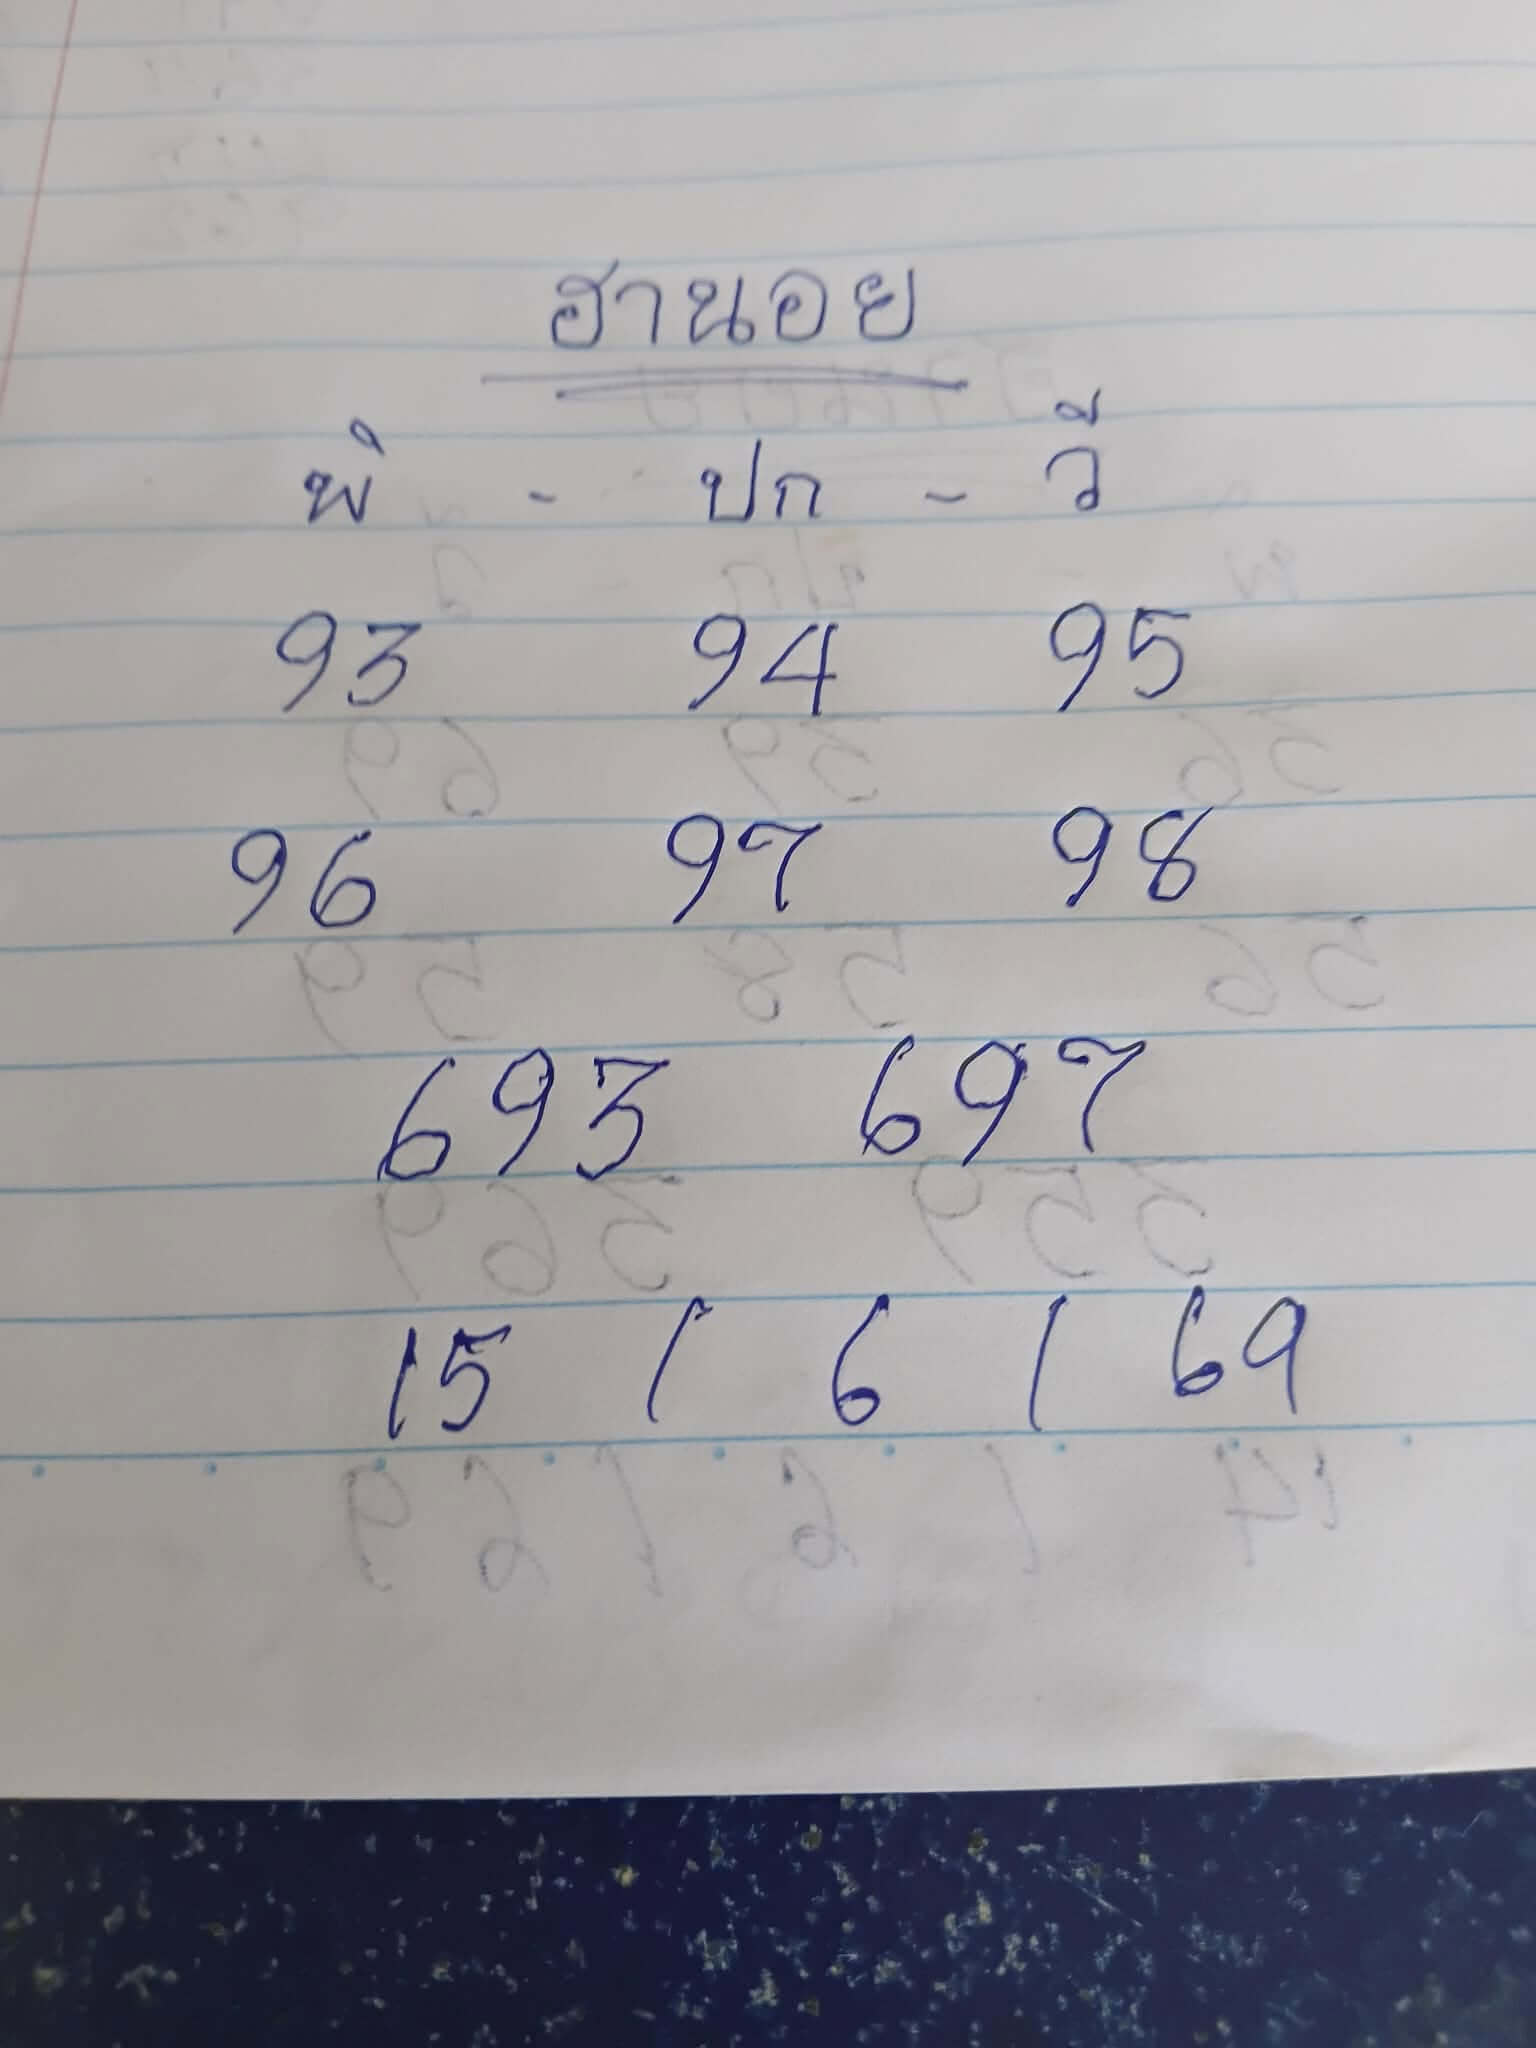 ฮานอย
พิ - ปก - วี
93 94 95
96 97 98
693 697
15 / 6 / 69